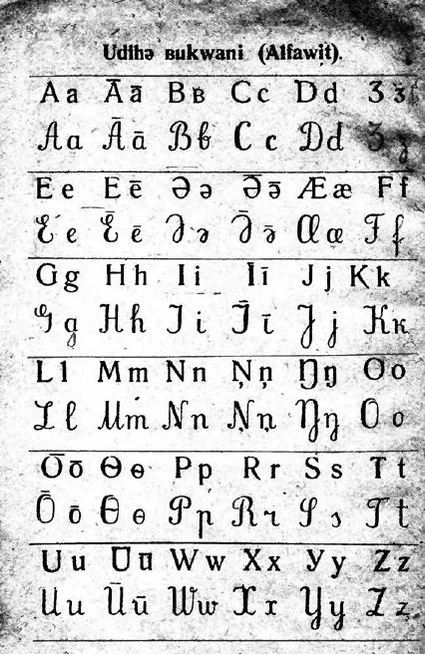 Udihə вukwani (Alfawiţ).
A a Ā ā B в C c D d Ʒ ʒ
A a Ā ā B в C c D d Ʒ ʒ
E e Ē ē Ə ə Ə̄ ə̄ Æ æ F f
E e Ē ē Ə ə Ə̄ ə̄ Æ æ F f
G g H h I i Ī ī J j K k
G g H h I i Ī ī J j K k
L l M m N n Ņ ņ Ŋ ŋ O o
L l M m N n Ņ ņ Ŋ ŋ O o
Ō ō Ɵ ɵ P p R r S s T t
Ō ō Ɵ ɵ P p R r S s T t
U u Ū ū W w X x У y Z z
U u Ū ū W w X x У y Z z